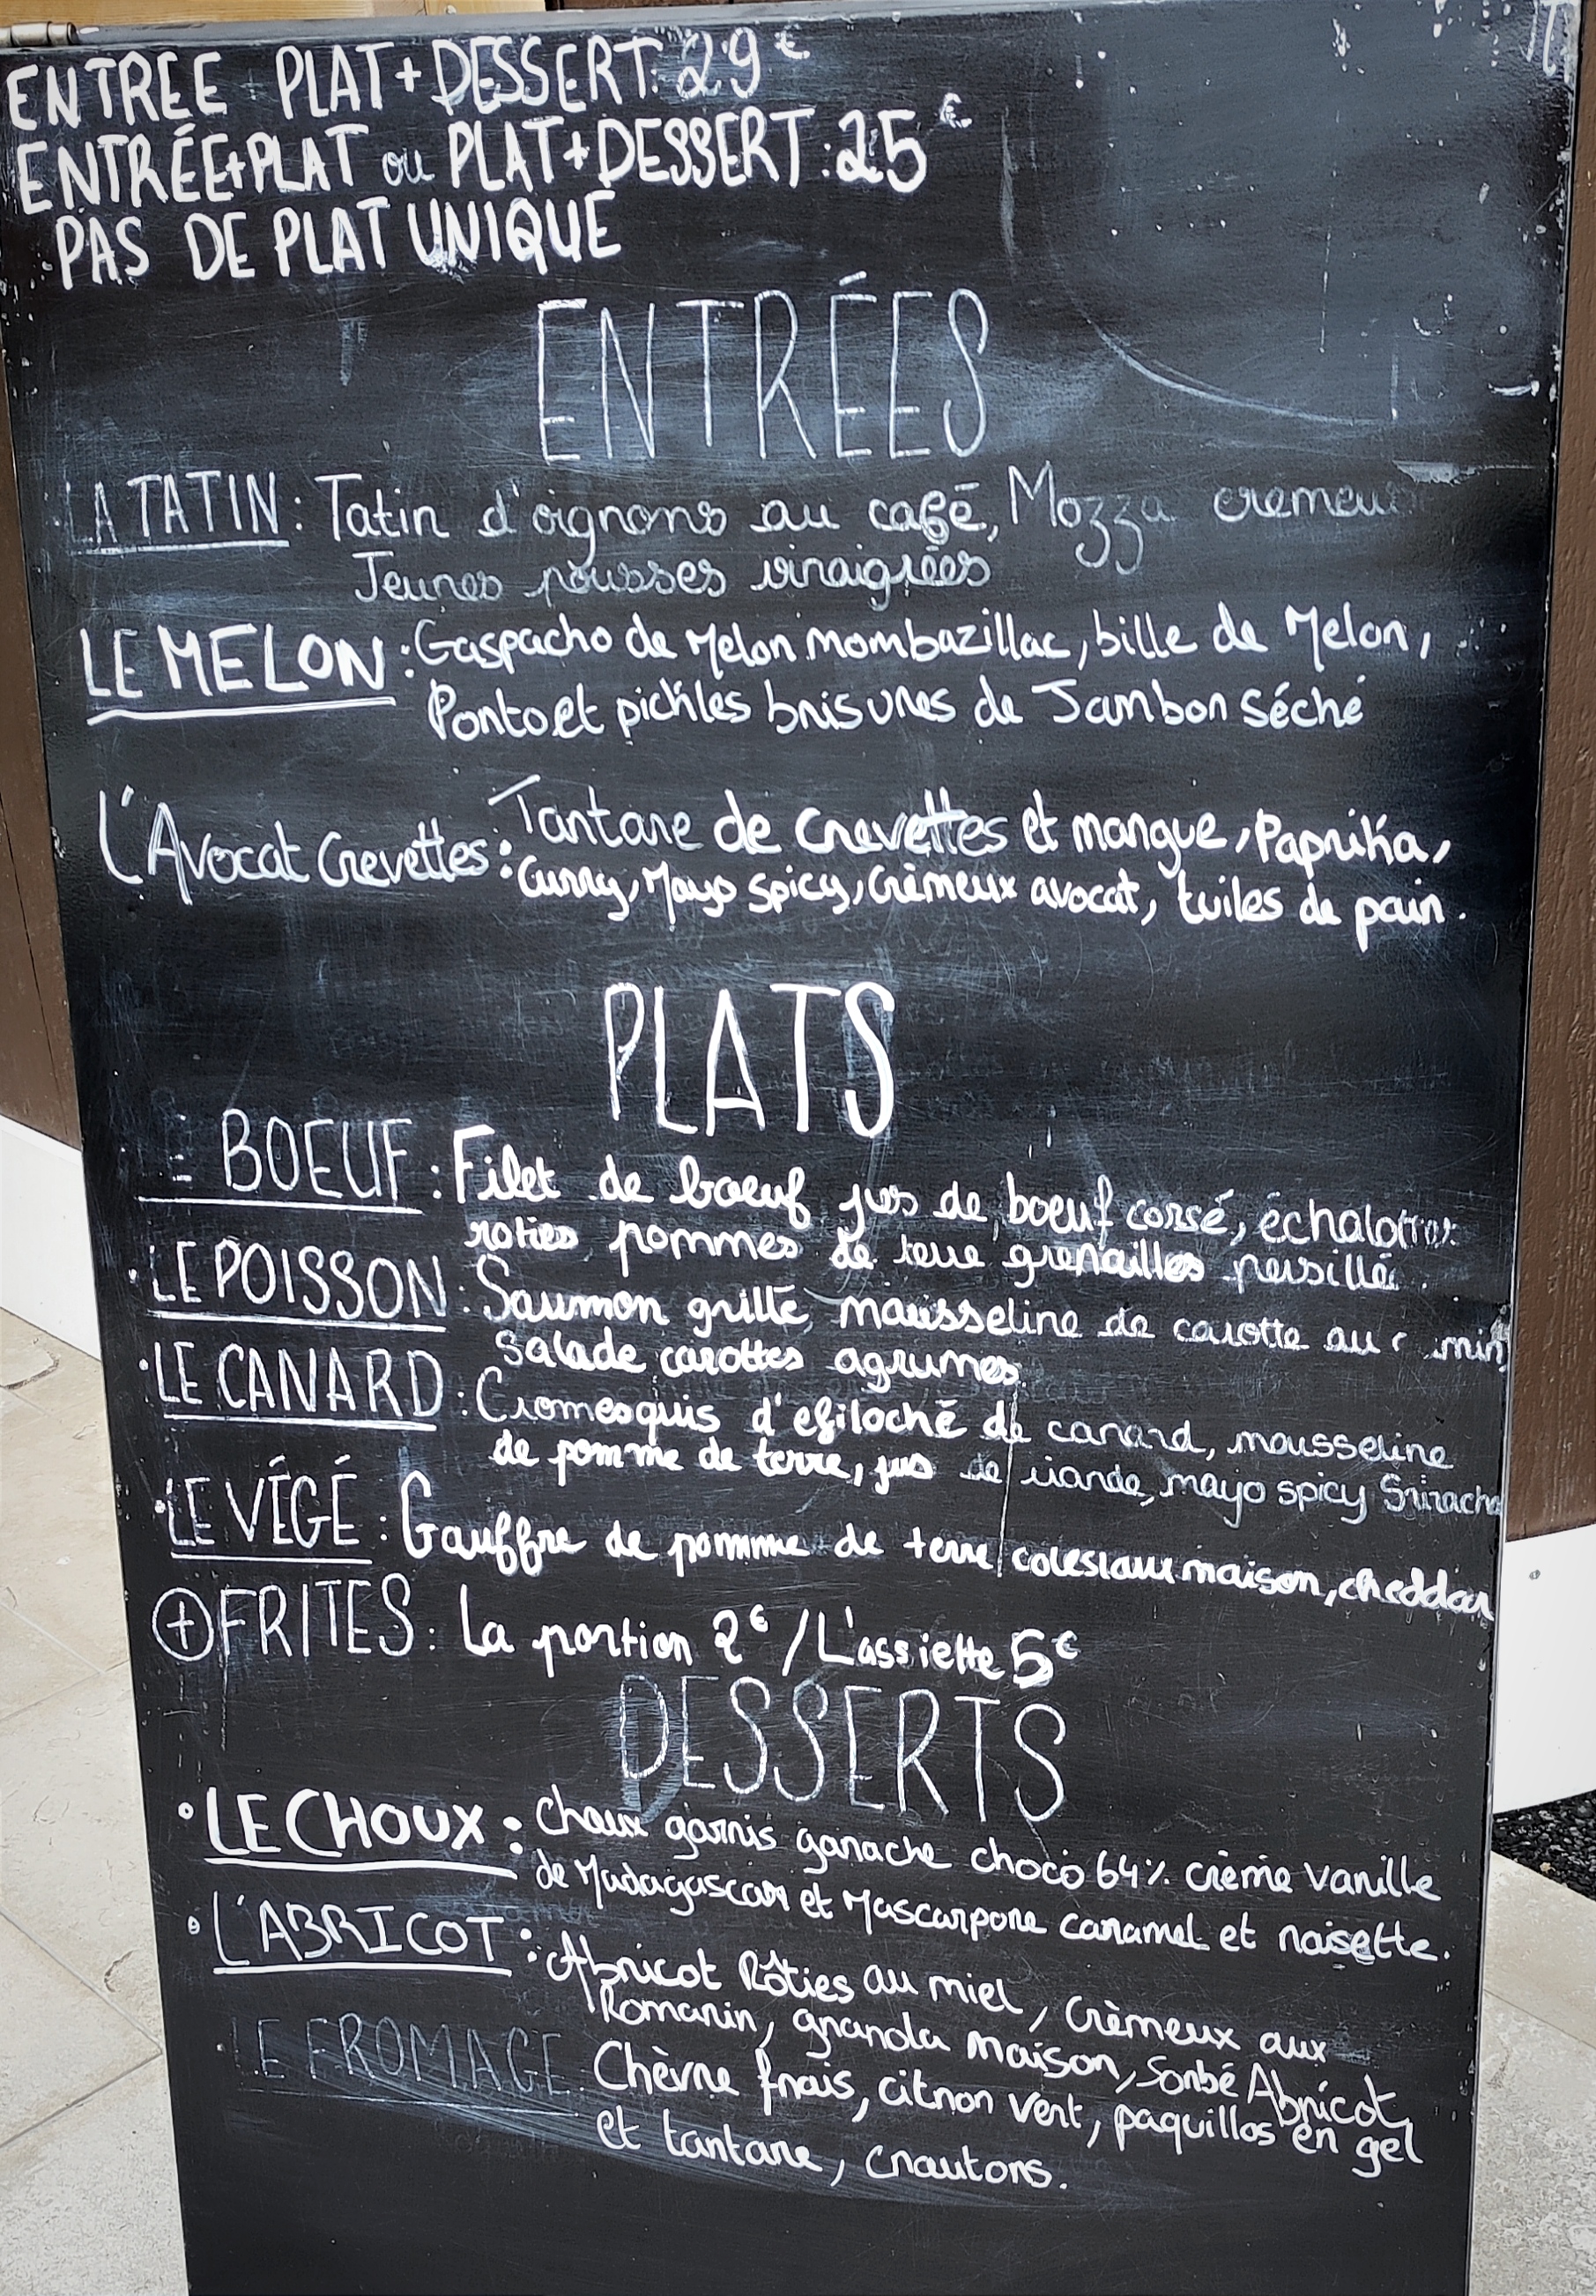 ENTREE PLAT+DESSERT: 29€
ENTRÉE+PLAT ou PLAT+DESSERT: 25€
PAS DE PLAT UNIQUE
ENTRÉES
LA TATIN: Tatin d'oignons au café, Mozza
Jeunes pousses vinaigrées
LE MELON: Gaspacho de Melon mombazillac, bille de Melon,
Porto et pickles brisures de Jambon Séché
L'Avocat Crevettes: Tartare de Crevettes et mangue, Paprika,
Curry, Mayo Spicy, Crèmeux avocat, tuiles de pain.
PLATS
LE BOEUF: Filet de boeuf jus de boeuf corsé,
roties pommes de terre grenailles persillé.
LE POISSON: Saumon grillé mousseline de carotte au
Salade carottes agrumes
LE CANARD: Cromesquis d'efiloché de canard, mousseline
de pomme de terre, jus de viande, mayo spicy Sriracha
LE VÉGÉ: Gauffre de pomme de terre coleslaux maison, cheddar
+ FRITES: La portion 2€ / L'assiette 5€
DESSERTS
LE CHOUX: Choux garnis ganache choco 64% crème vanille
de Madagascar et Mascarpone caramel et noisette.
L'ABRICOT: Abricot Rôties au miel, Crèmeux aux
Romarin, granola maison, Sorbé Abricot
LE FROMAGE: Chèvre frais, citron vert, paquillos en gel
et tartare, croutons.